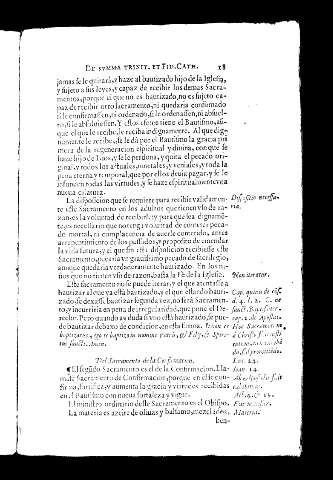 DE SVMMA TRINIT. ET FID. CATH. 18
jamas se le quitará, y haze al bautizado hijo de la Iglesia,
y sujeto a sus leyes, y capaz de recibir los demas Sacra-
mentos, porque el que no es bautizado, no es sujeto ca-
paz de recibir otro sacramento, ni quedaria confirmado
si le confirmassen, ni ordenado, si le ordenassen, ni absuel-
to, si le absoluiessen. Y estos efetos tiene el Bautismo, aũ-
que el que le recibe, le reciba indignamente. Al que dig-
namente le recibe, se le dà por el Bautismo la gracia pri-
mera de la regeneracion espiritual y diuina, con que se
haze hijo de Dios, y se le perdona, y quita el pecado ori-
ginal, y todos los actuales, mortales, y veniales, y toda la
pena eterna y temporal, que por ellos deuia pagar, y se le
infunden todas las virtudes, y se haze espiritualmente vna
nueua criatura.
La disposicion que se requiere para recibir validamen-
te este Sacramento en los adultos que tienen vso de ra-
zon es la voluntad de recibirle, y para que sea dignamē-
te, es necessario que no tenga voluntad de cometer peca-
do mortal, ni complacencia de auerle cometido, antes
arrepentimiento de los passados, y proposito de emendar
la vida futura, y el que sin esta disposicion recibiesse este
Sacramento, pecaria grauissimo pecado de sacrilegio,
aunque quedaria verdaderamente bautizado. En los ni-
ños que no tienen vso de razon basta la Fè de la Iglesia.
Este sacramento no se puede iterar, y el que atentasse a
bautizar al que ya está bautizado, y el que estando bauti-
zado se dexasse bautizar segunda vez, no será Sacramen-
to, y incurriria en pena de irregularidad, que pone el De-
recho. Pero quando ay duda si vno está bautizado, se pue-
de bautizar debaxo de condicion, en esta forma.
baptizatus, ego te baptizo in nomine Patris, & Filij, & Spiri-
tus sancti. Amen.
Del Sacramento de la Confirmacion.
¶ El segũdo Sacramento es el de la Confirmacion. Lla-
mase Sacramento de Confirmacion, porque en el se con-
firma, fortifica, y aumenta la gracia y virtudes recibidas
en el Bautismo con nueua fortaleza y vigor.
El ministro ordinario deste Sacramento es el Obispo.
La materia es azeite de oliuas y balsamo, mezclados,
Disposició necessa-
ria.
Non iteratur.
Ioan. 14.
Materia.